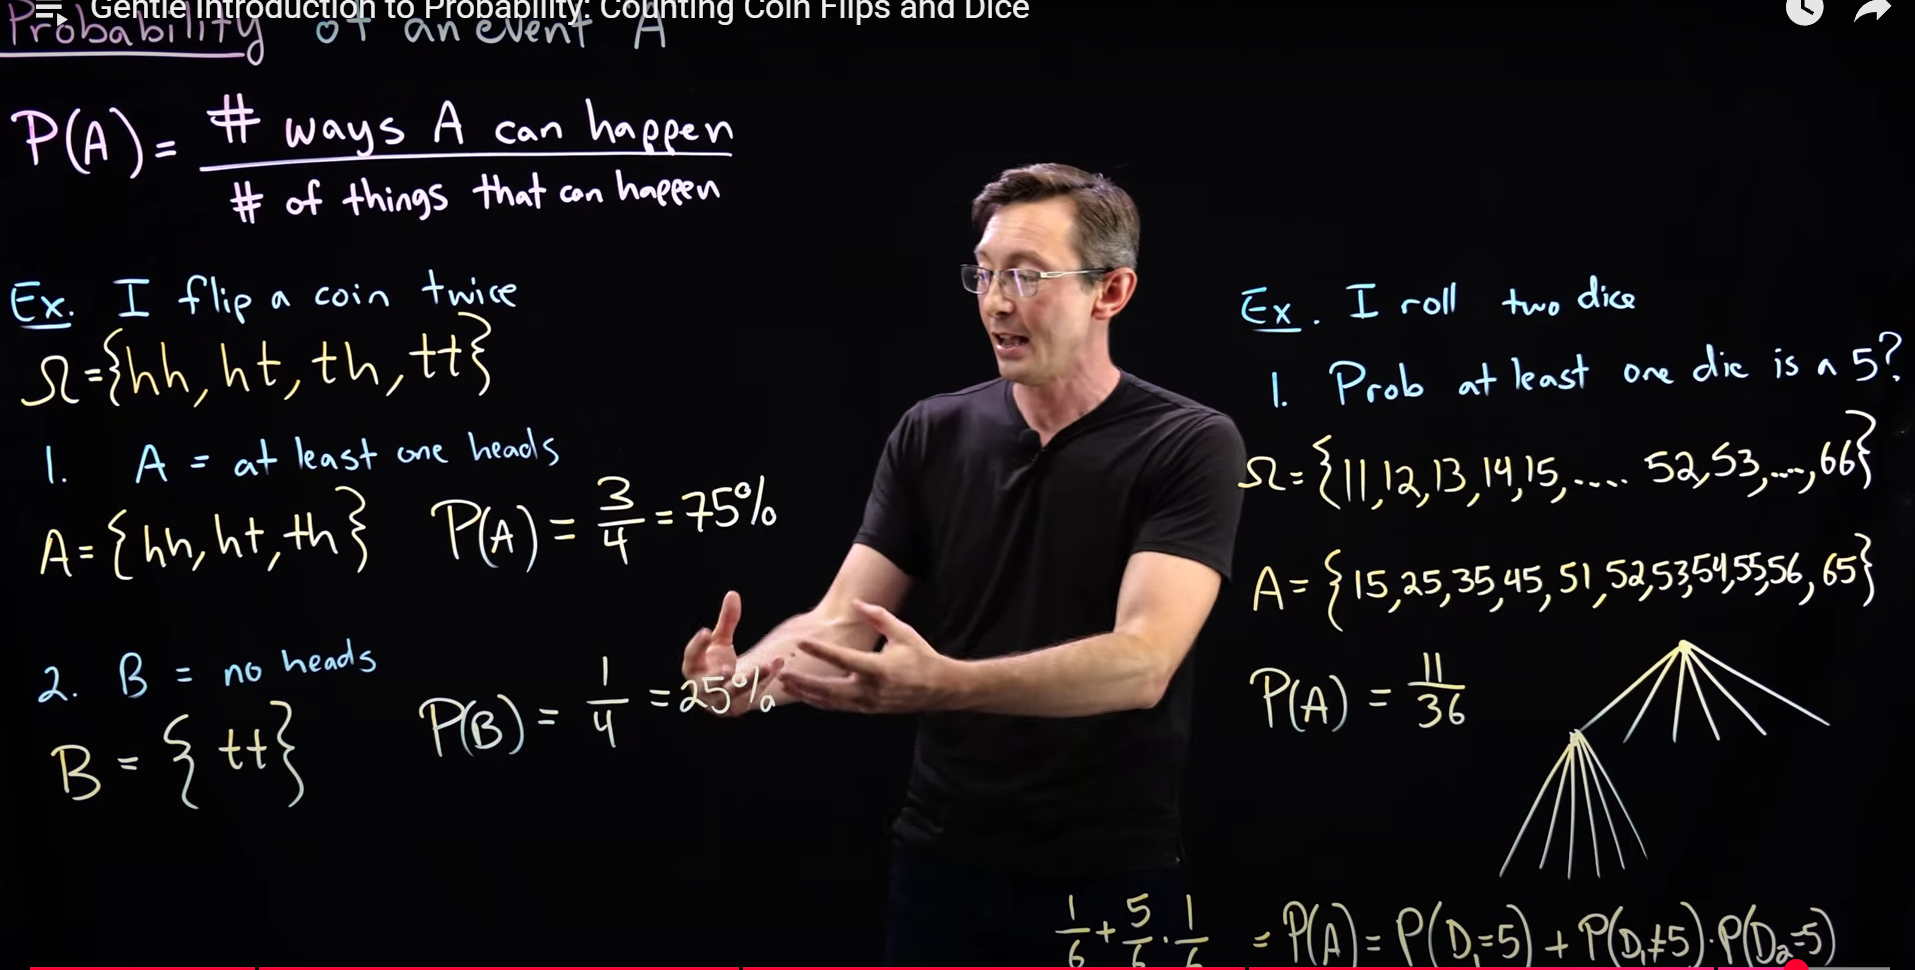 Gentle Introduction to Probability: Counting Coin Flips and Dice
Probability of an event A
P(A) = # ways A can happen / # of things that can happen
Ex. I flip a coin twice
Ω = {hh, ht, th, tt}
1. A = at least one heads
A = {hh, ht, th} P(A) = 3/4 = 75%
2. B = no heads
B = {tt} P(B) = 1/4 = 25%
Ex. I roll two dice
1. Prob at least one die is a 5?
Ω = {11, 12, 13, 14, 15, .... 52, 53, ..., 66}
A = {15, 25, 35, 45, 51, 52, 53, 54, 55, 56, 65}
P(A) = 11/36
1/6 + 5/6 · 1/6 = P(A) = P(D₁=5) + P(D₁≠5)·P(D₂=5)